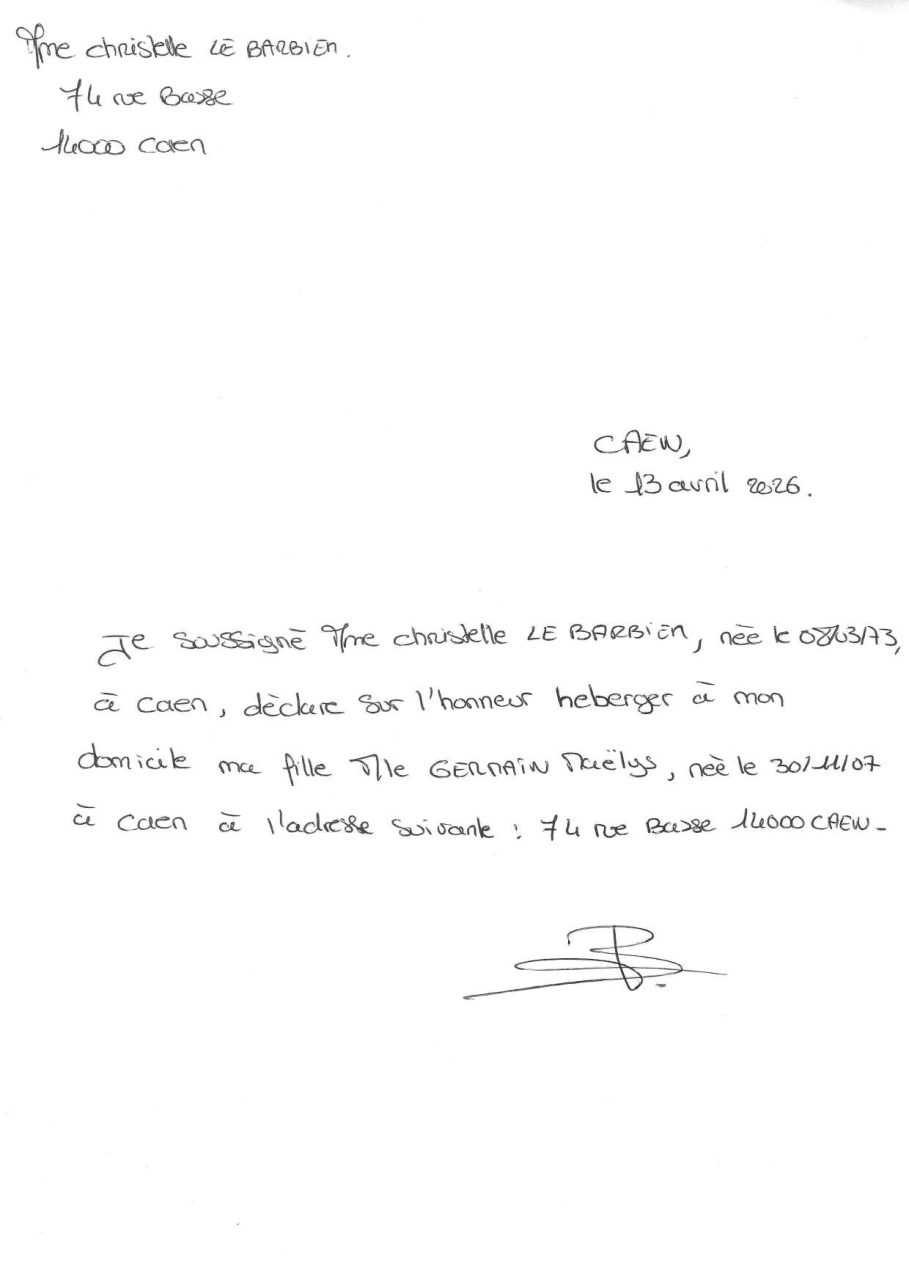 Mme christelle LE BARBIEN.
74 rue Basse
14000 Caen
CAEN,
le 13 avril 2026.
Je soussigné Mme christelle LE BARBIEN, née le 08/03/73,
à Caen, déclare sur l'honneur heberger à mon
domicile ma fille Mlle GERMAIN Maëlys, née le 30/11/07
à Caen à l'adresse suivante : 74 rue Basse 14000 CAEN-